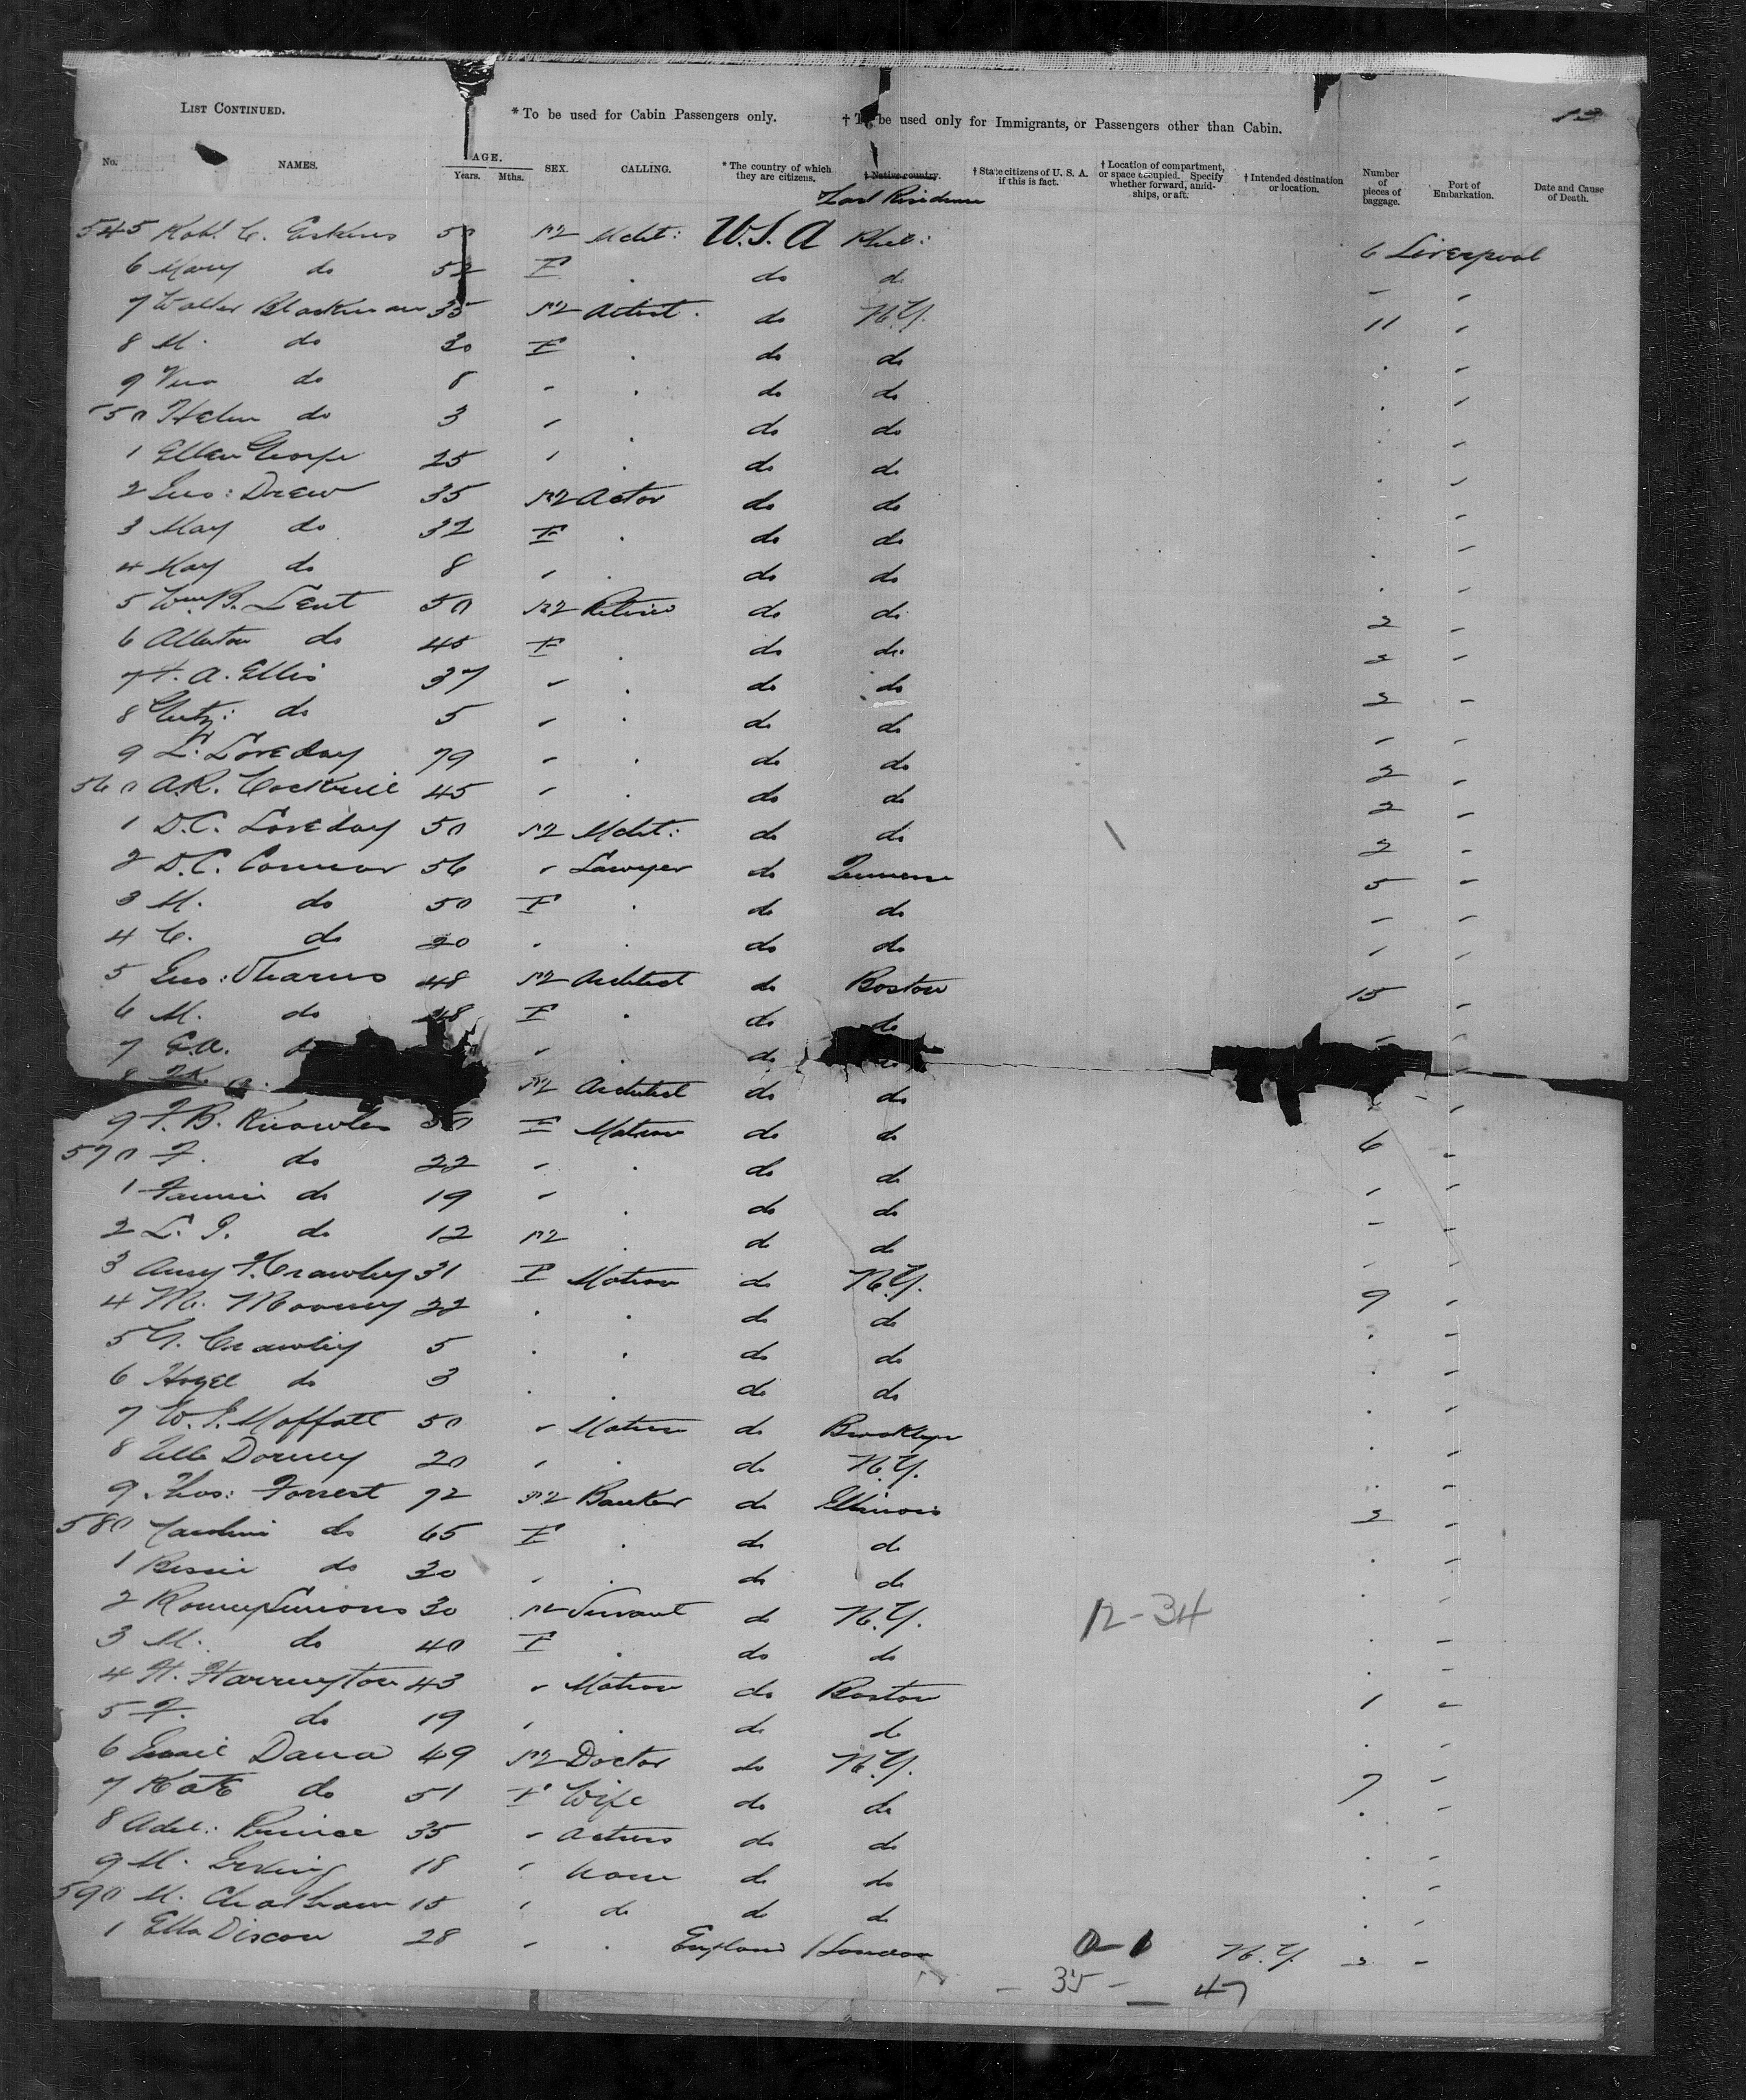 LIST CONTINUED. * To be used for Cabin Passengers only. † To be used only for Immigrants, or Passengers other than Cabin. 13
No. NAMES. AGE. Years. Mths. SEX. CALLING. * The country of which they are citizens. † Native country. Last Residence † State citizens of U. S. A. if this is fact. † Location of compartment, or space occupied. Specify whether forward, amidships, or aft. † Intended destination or location. Number of pieces of baggage. Port of Embarkation. Date and Cause of Death.
545 Robt. C. Erskine M Mcht: U.S.A Phil: 6 Liverpool
6 Mary do 52 F do do
7 Walter Blackman 35 M Artist do N.Y. 11
8 M. do 30 F do do
9 Vera do 8 do do
550 Helen do 3 do do
1 Ellen 25 do do
2 Geo: Drew 35 M Actor do do
3 May do 32 F do do
4 May do 8 do do
5 Wm B. Lent 50 M Retired do do 2
6 do 45 F do do 2
7 F. A. Ellis 37 do do 2
8 do 5 do do
9 L. Loveday 79 do do 2
560 A.R. Cockrill 45 do do 2
1 D.C. Loveday 50 M Mcht: do do 2
2 D.C. Connor 56 Lawyer do 5
3 M. do 50 F do do
4 C. do 20 do do
5 Geo: 48 M Architect do Boston 15
6 M. do 48 F do do
7 E.A. do
8 M Architect do do
9 F.B. Knowles 50 F Matron do do 6
570 F. do 22 do do
1 Fannie do 19 do do
2 L. P. do 12 M do do
3 Amy F. Crawley 31 F Matron do N.Y. 9
4 M. Mooney 22 do do
5 G. Crawley 5 do do
6 Hazel do 3 do do
7 W. J. Moffatt 50 Matron do Brooklyn
8 Dorney 20 do N.Y.
9 Thos: Forrest 72 M Banker do Illinois 2
580 Caroline do 65 F do do
1 Bessie do 30 do do
2 30 M Servant do N.Y. 12-34
3 M. do 40 F do do
4 H. Harrington 43 Matron do Boston 1
5 F. do 19 do do
6 Dana 49 M Doctor do N.Y. 7
7 Kate do 51 F Wife do do
8 Adel: Prince 35 Actress do do
9 M. Erving 18 None do do
590 M. Chatham 15 do do do
1 Ella Discon 28 England London 0-1 N.Y. 2
- 35 - - 47